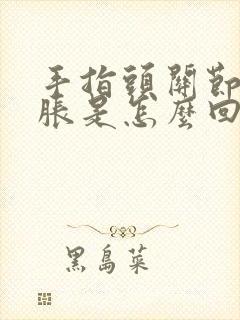 手指頭關節
脹是怎麼回
黑島菜